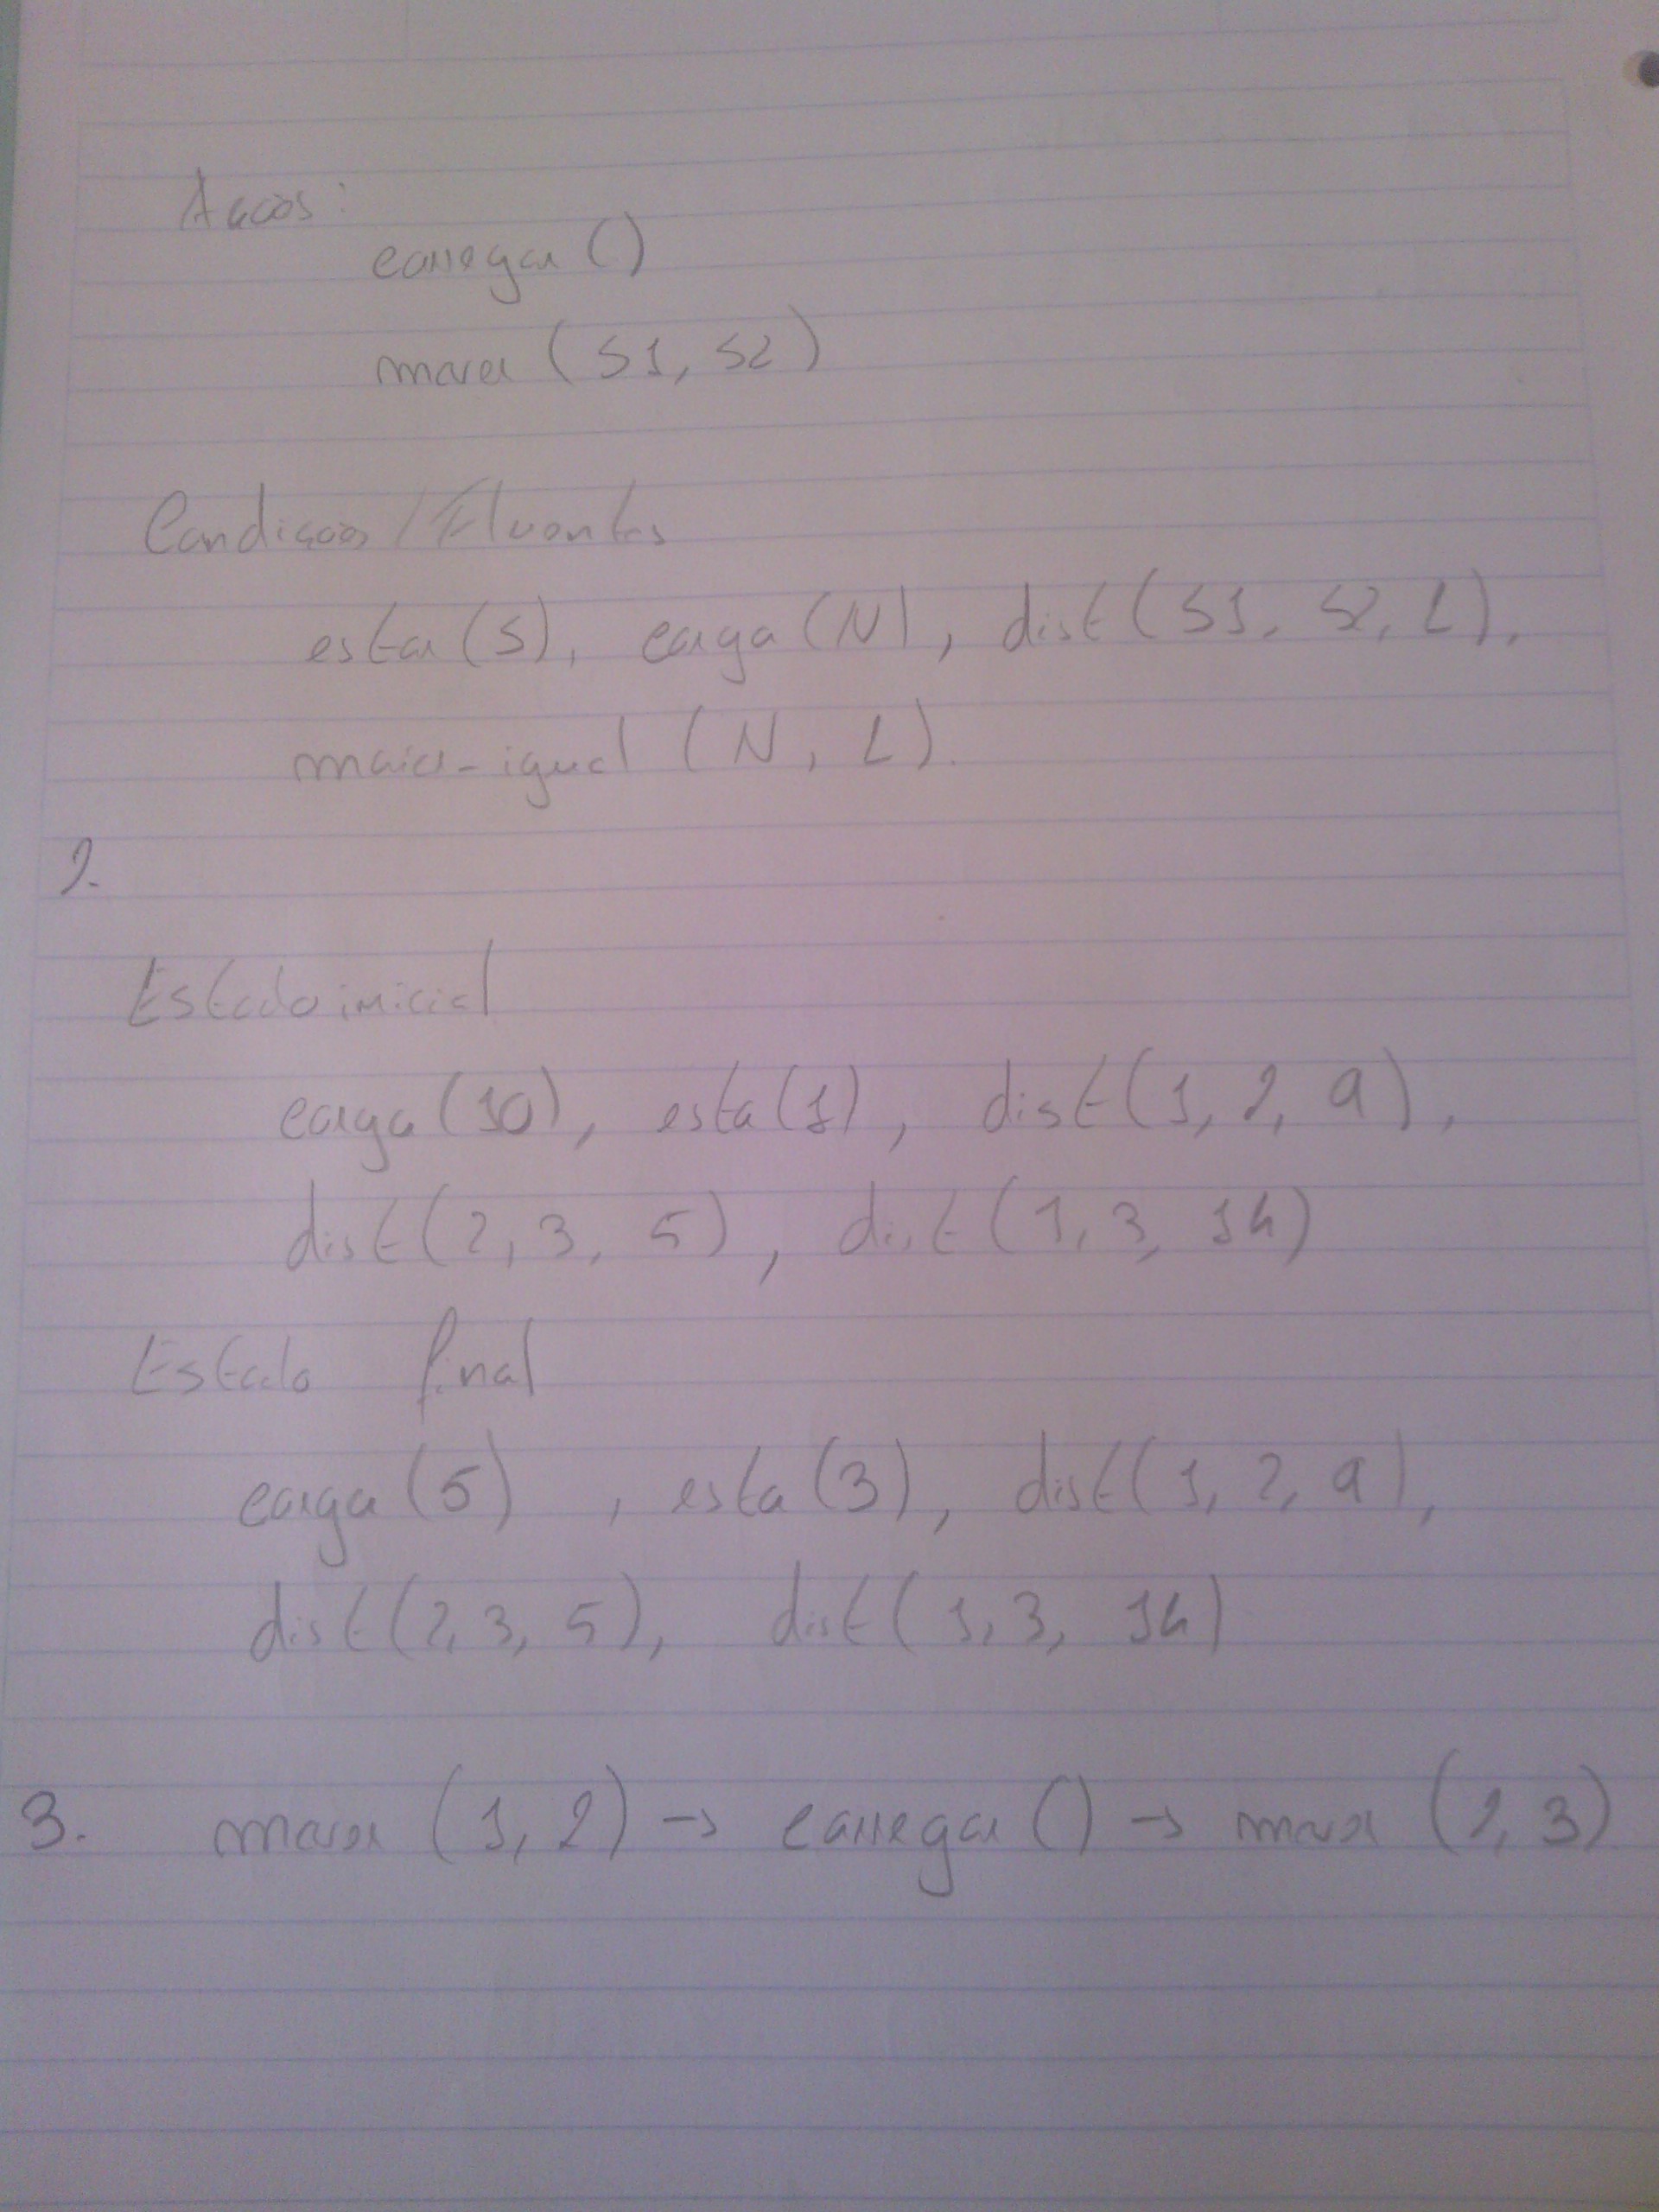 Acções:
carregar ()
mover (S1, S2)
Condições / Fluentes
estar (S), carga (N), dist (S1, S2, L),
maior-igual (N, L).
2.
Estado inicial
carga (10), esta (1), dist (1, 2, 9),
dist (2, 3, 5), dist (1, 3, 14)
Estado final
carga (5), esta (3), dist (1, 2, 9),
dist (2, 3, 5), dist (1, 3, 14)
3. mover (1, 2) → carregar () → mover (2, 3)